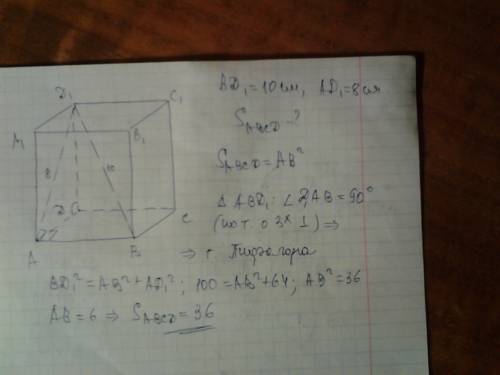 D₁
C₁
A₁
B₁
8
10
D
C
A
B
BD₁ = 10 см, AD₁ = 8 см
S ABCD - ?
S ABCD = AB²
Δ ABD₁: ∠D₁AB = 90°
(по т. о 3х ⊥) ⇒
⇒ т. Пифагора
BD₁² = AB² + AD₁²; 100 = AB² + 64; AB² = 36
AB = 6 ⇒ S ABCD = 36